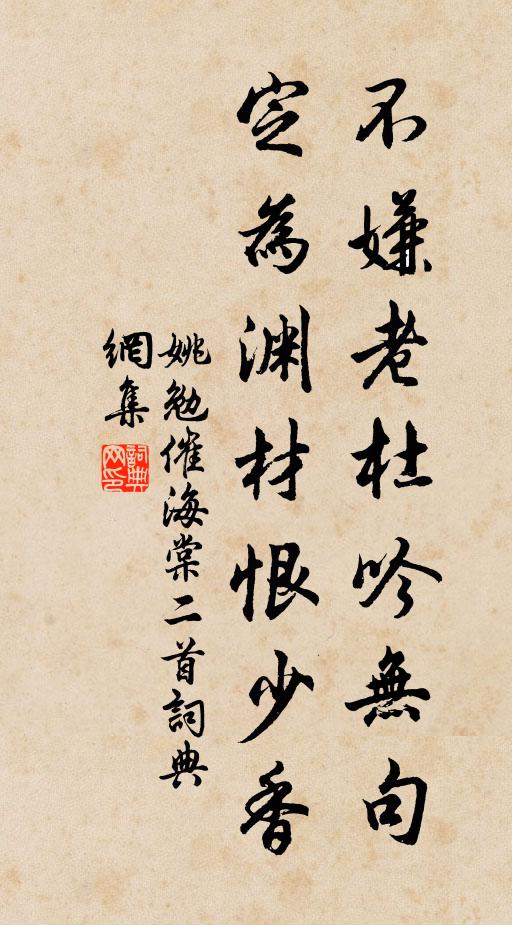 不嫌老杜吟無句
定為淵材恨少香
姚勉催海棠二首詞典
網集
詞典网印